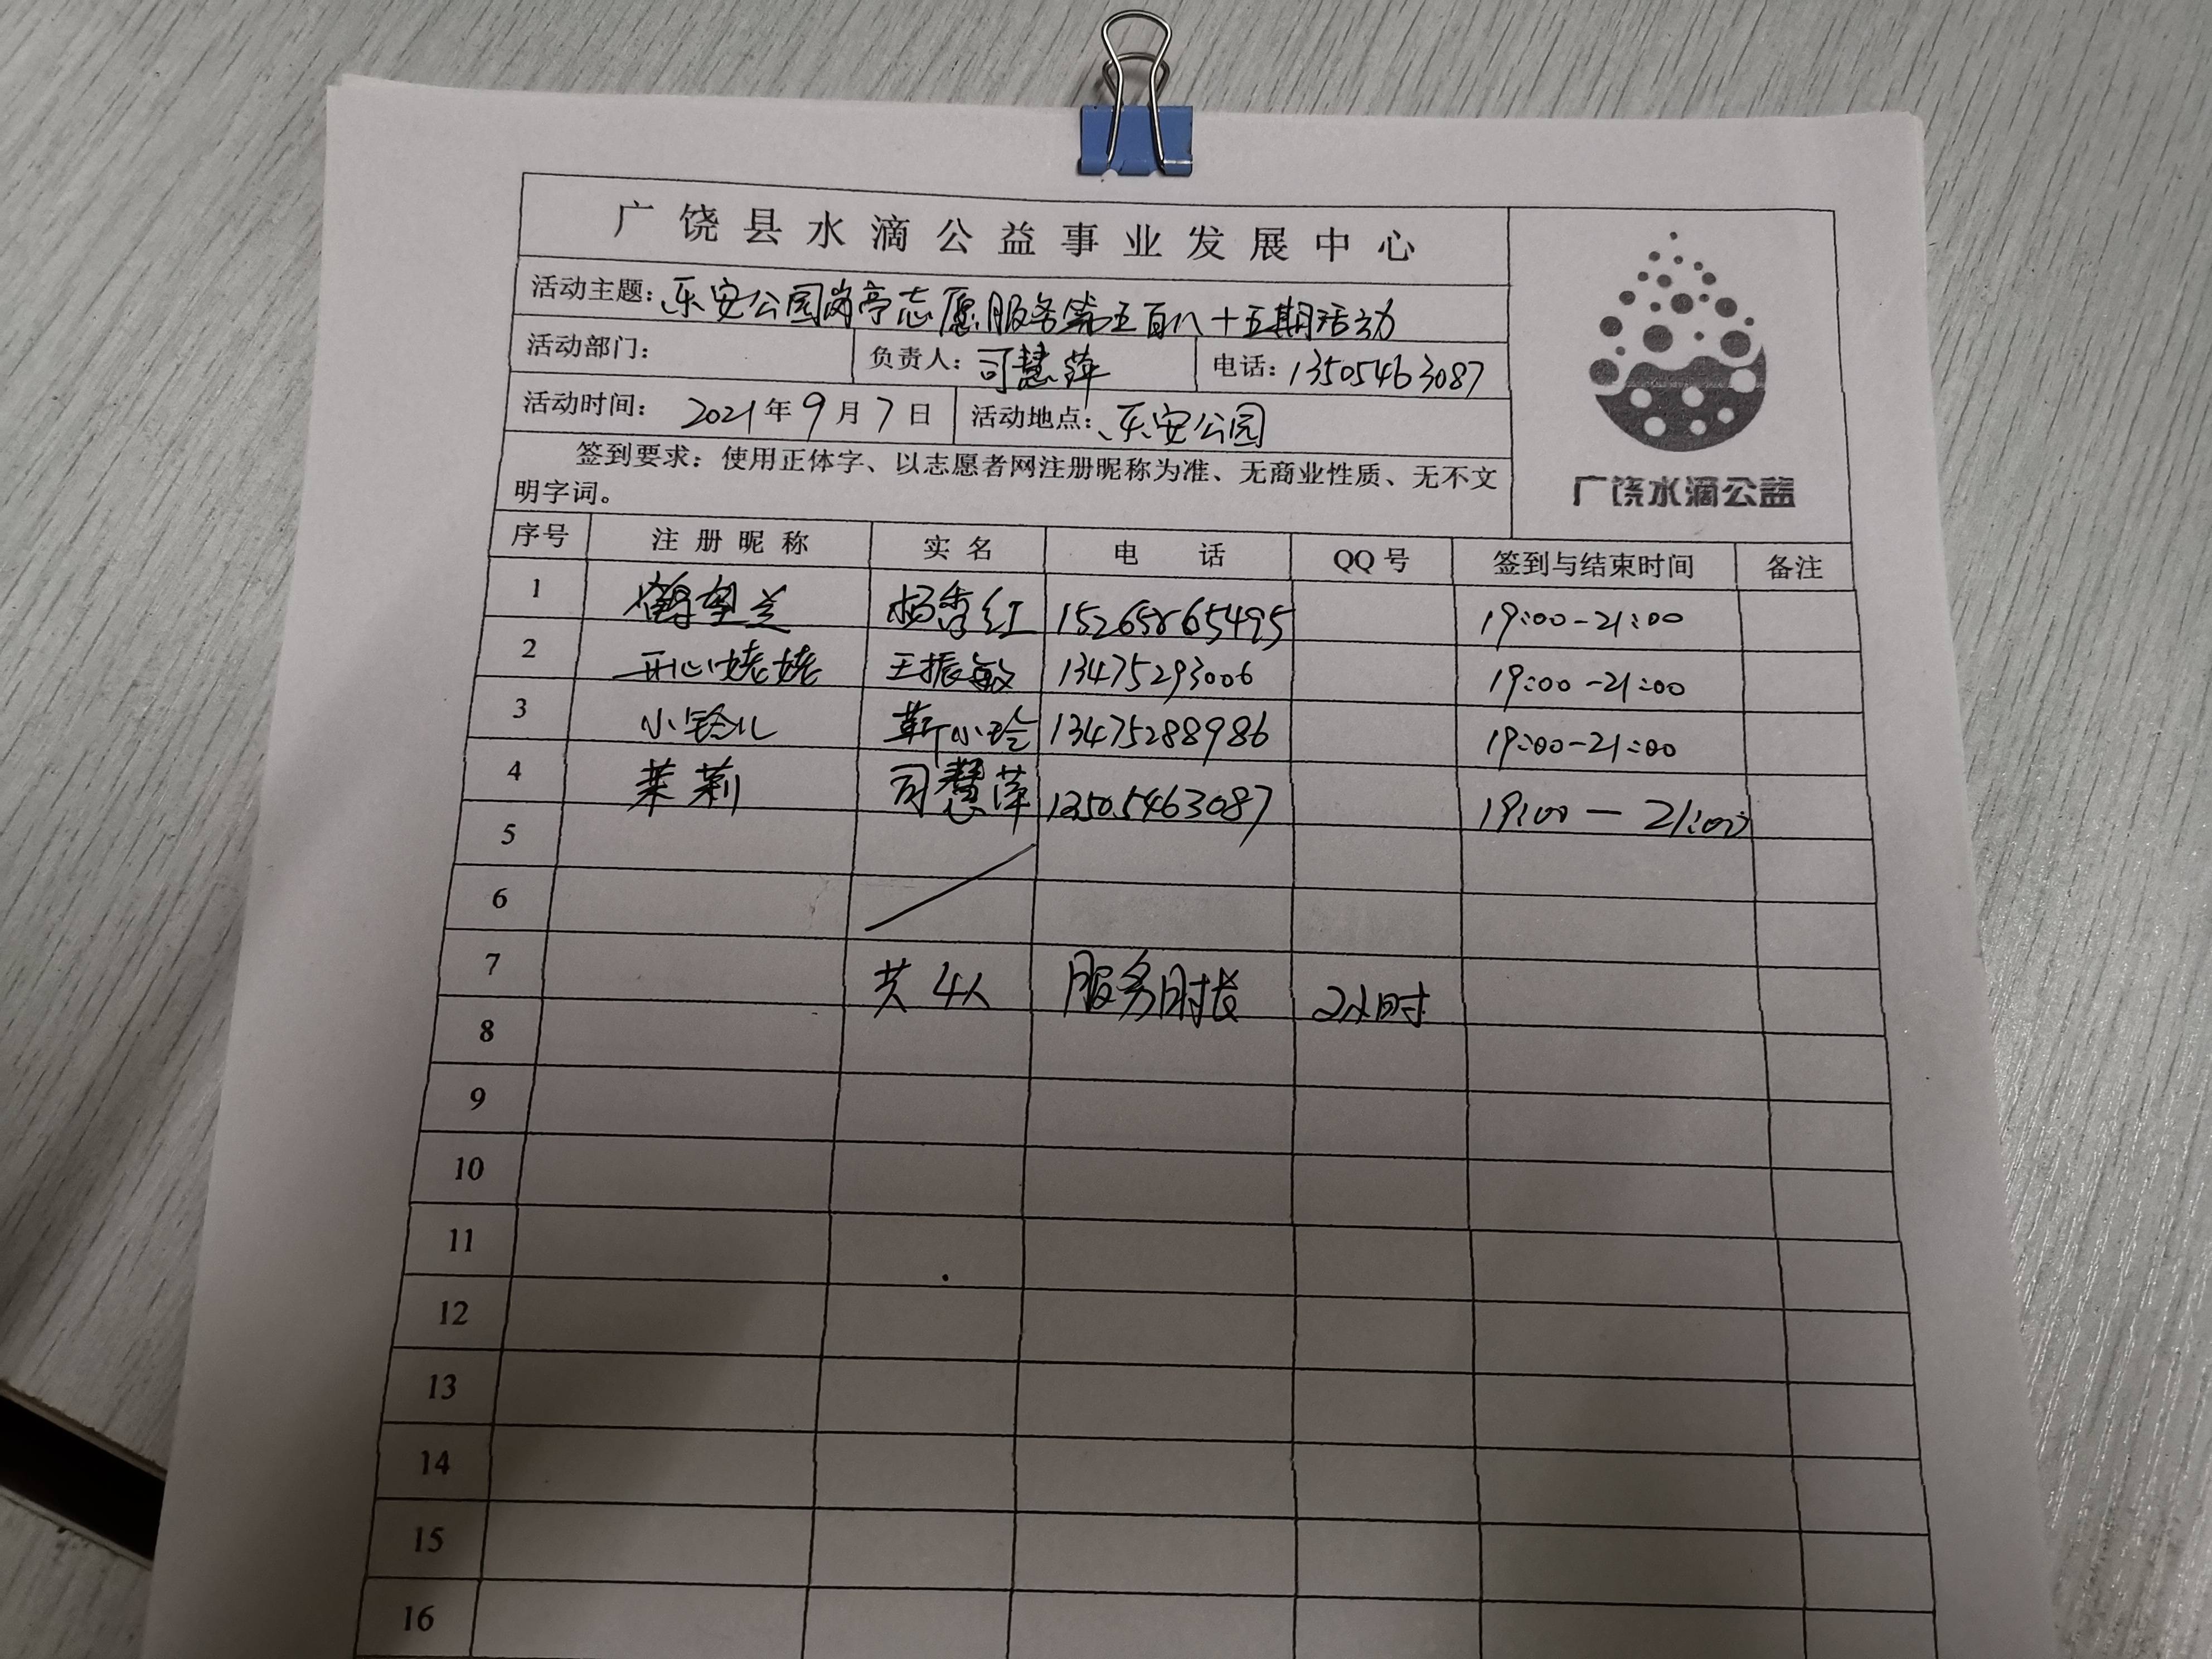 广饶县水滴公益事业发展中心
活动主题：乐安公园岗亭志愿服务第五百八十五期活动
活动部门： 负责人：司慧萍 电话：13505463087
活动时间：2021年9月7日 活动地点：乐安公园
签到要求：使用正体字、以志愿者网注册昵称为准、无商业性质、无不文
明字词。
广饶水滴公益
序号 注册昵称 实名 电话 QQ号 签到与结束时间 备注
1 鹤望兰 杨秀红 15265865495 19:00-21:00
2 开心姥姥 王振敏 13475293006 19:00-21:00
3 小铃儿 靳小玲 13475288986 19:00-21:00
4 茉莉 司慧萍 13505463087 19:00—21:00
5
6
7 共4人 服务时长 2小时
8
9
10
11
12
13
14
15
16